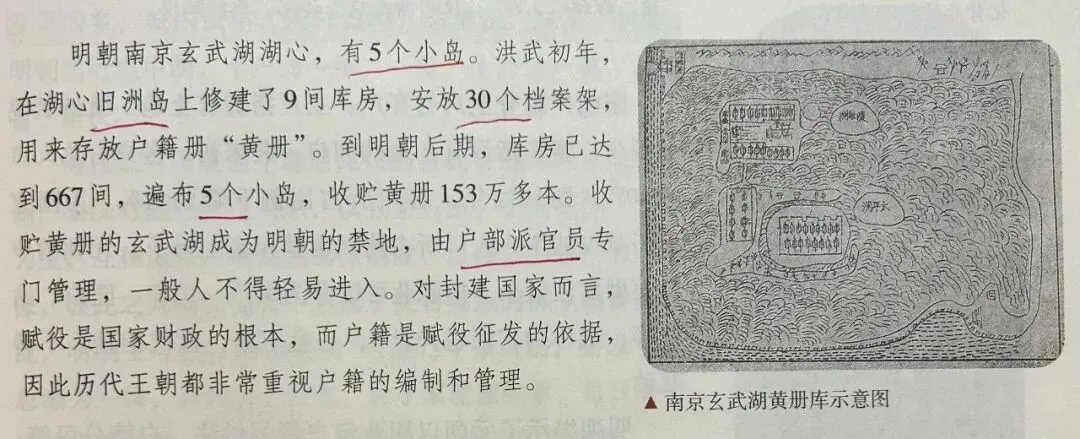 明朝南京玄武湖湖心，有5个小岛。洪武初年，
在湖心旧洲岛上修建了9间库房，安放30个档案架，
用来存放户籍册“黄册”。到明朝后期，库房已达
到667间，遍布5个小岛，收贮黄册153万多本。收
贮黄册的玄武湖成为明朝的禁地，由户部派官员专
门管理，一般人不得轻易进入。对封建国家而言，
赋役是国家财政的根本，而户籍是赋役征发的依据，
因此历代王朝都非常重视户籍的编制和管理。
▲ 南京玄武湖黄册库示意图